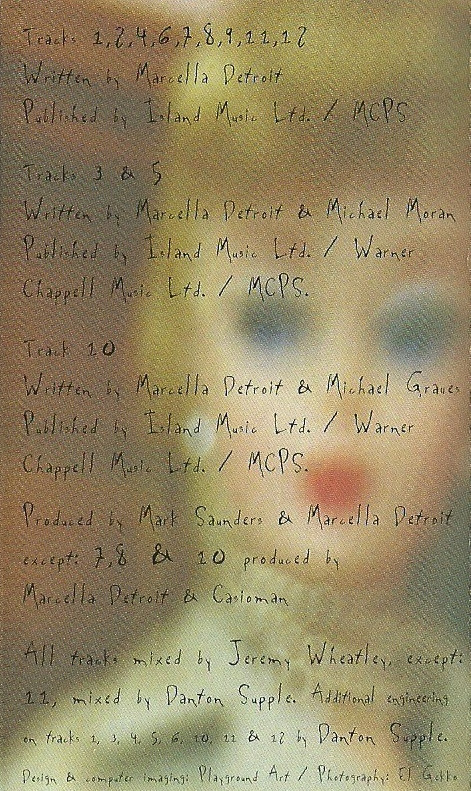 Tracks 1,2,4,6,7,8,9,11,12
Written by Marcella Detroit
Published by Island Music Ltd. / MCPS
Tracks 3 & 5
Written by Marcella Detroit & Michael Moran
Published by Island Music Ltd. / Warner
Chappell Music Ltd. / MCPS.
Track 10
Written by Marcella Detroit & Michael Graves
Published by Island Music Ltd. / Warner
Chappell Music Ltd. / MCPS.
Produced by Mark Saunders & Marcella Detroit
except: 7,8 & 10 produced by
Marcella Detroit & Casioman
All tracks mixed by Jeremy Wheatley, except:
11, mixed by Danton Supple. Additional engineering
on tracks 1, 3, 4, 5, 6, 10, 11 & 12 by Danton Supple.
Design & computer imaging: Playground Art / Photography: El Gekko